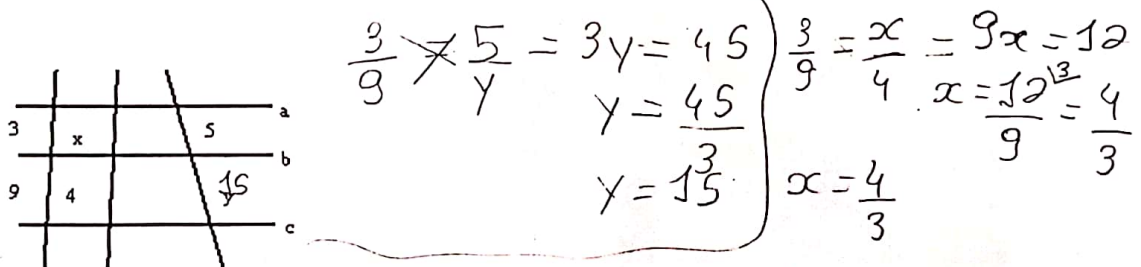 a
3 x 5
b
9 4 15
c
3/9 = 5/y = 3y = 45
y = 45/3
y = 15
3/9 = x/4 = 9x = 12
x = 12/9 |3 = 4/3
x = 4/3